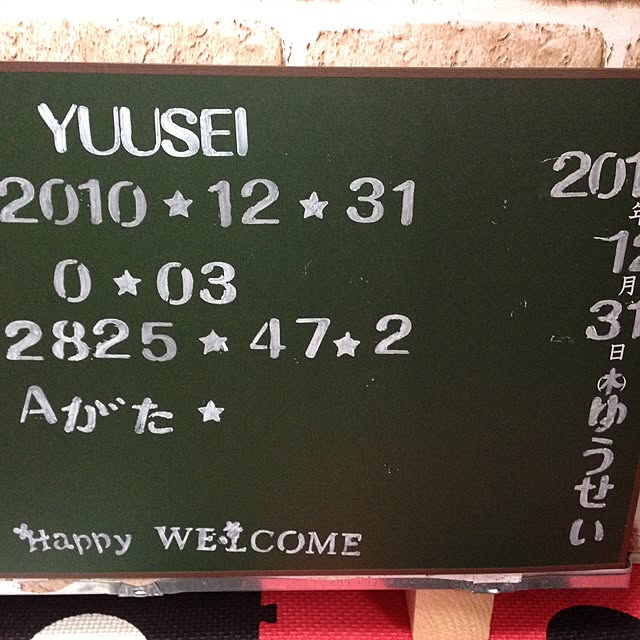 YUUSEI
2010★12★31
0★03
2825★47★2
Aがた★
Happy WELCOME
201
年
12
月
31
日
㊍
ゆうせい